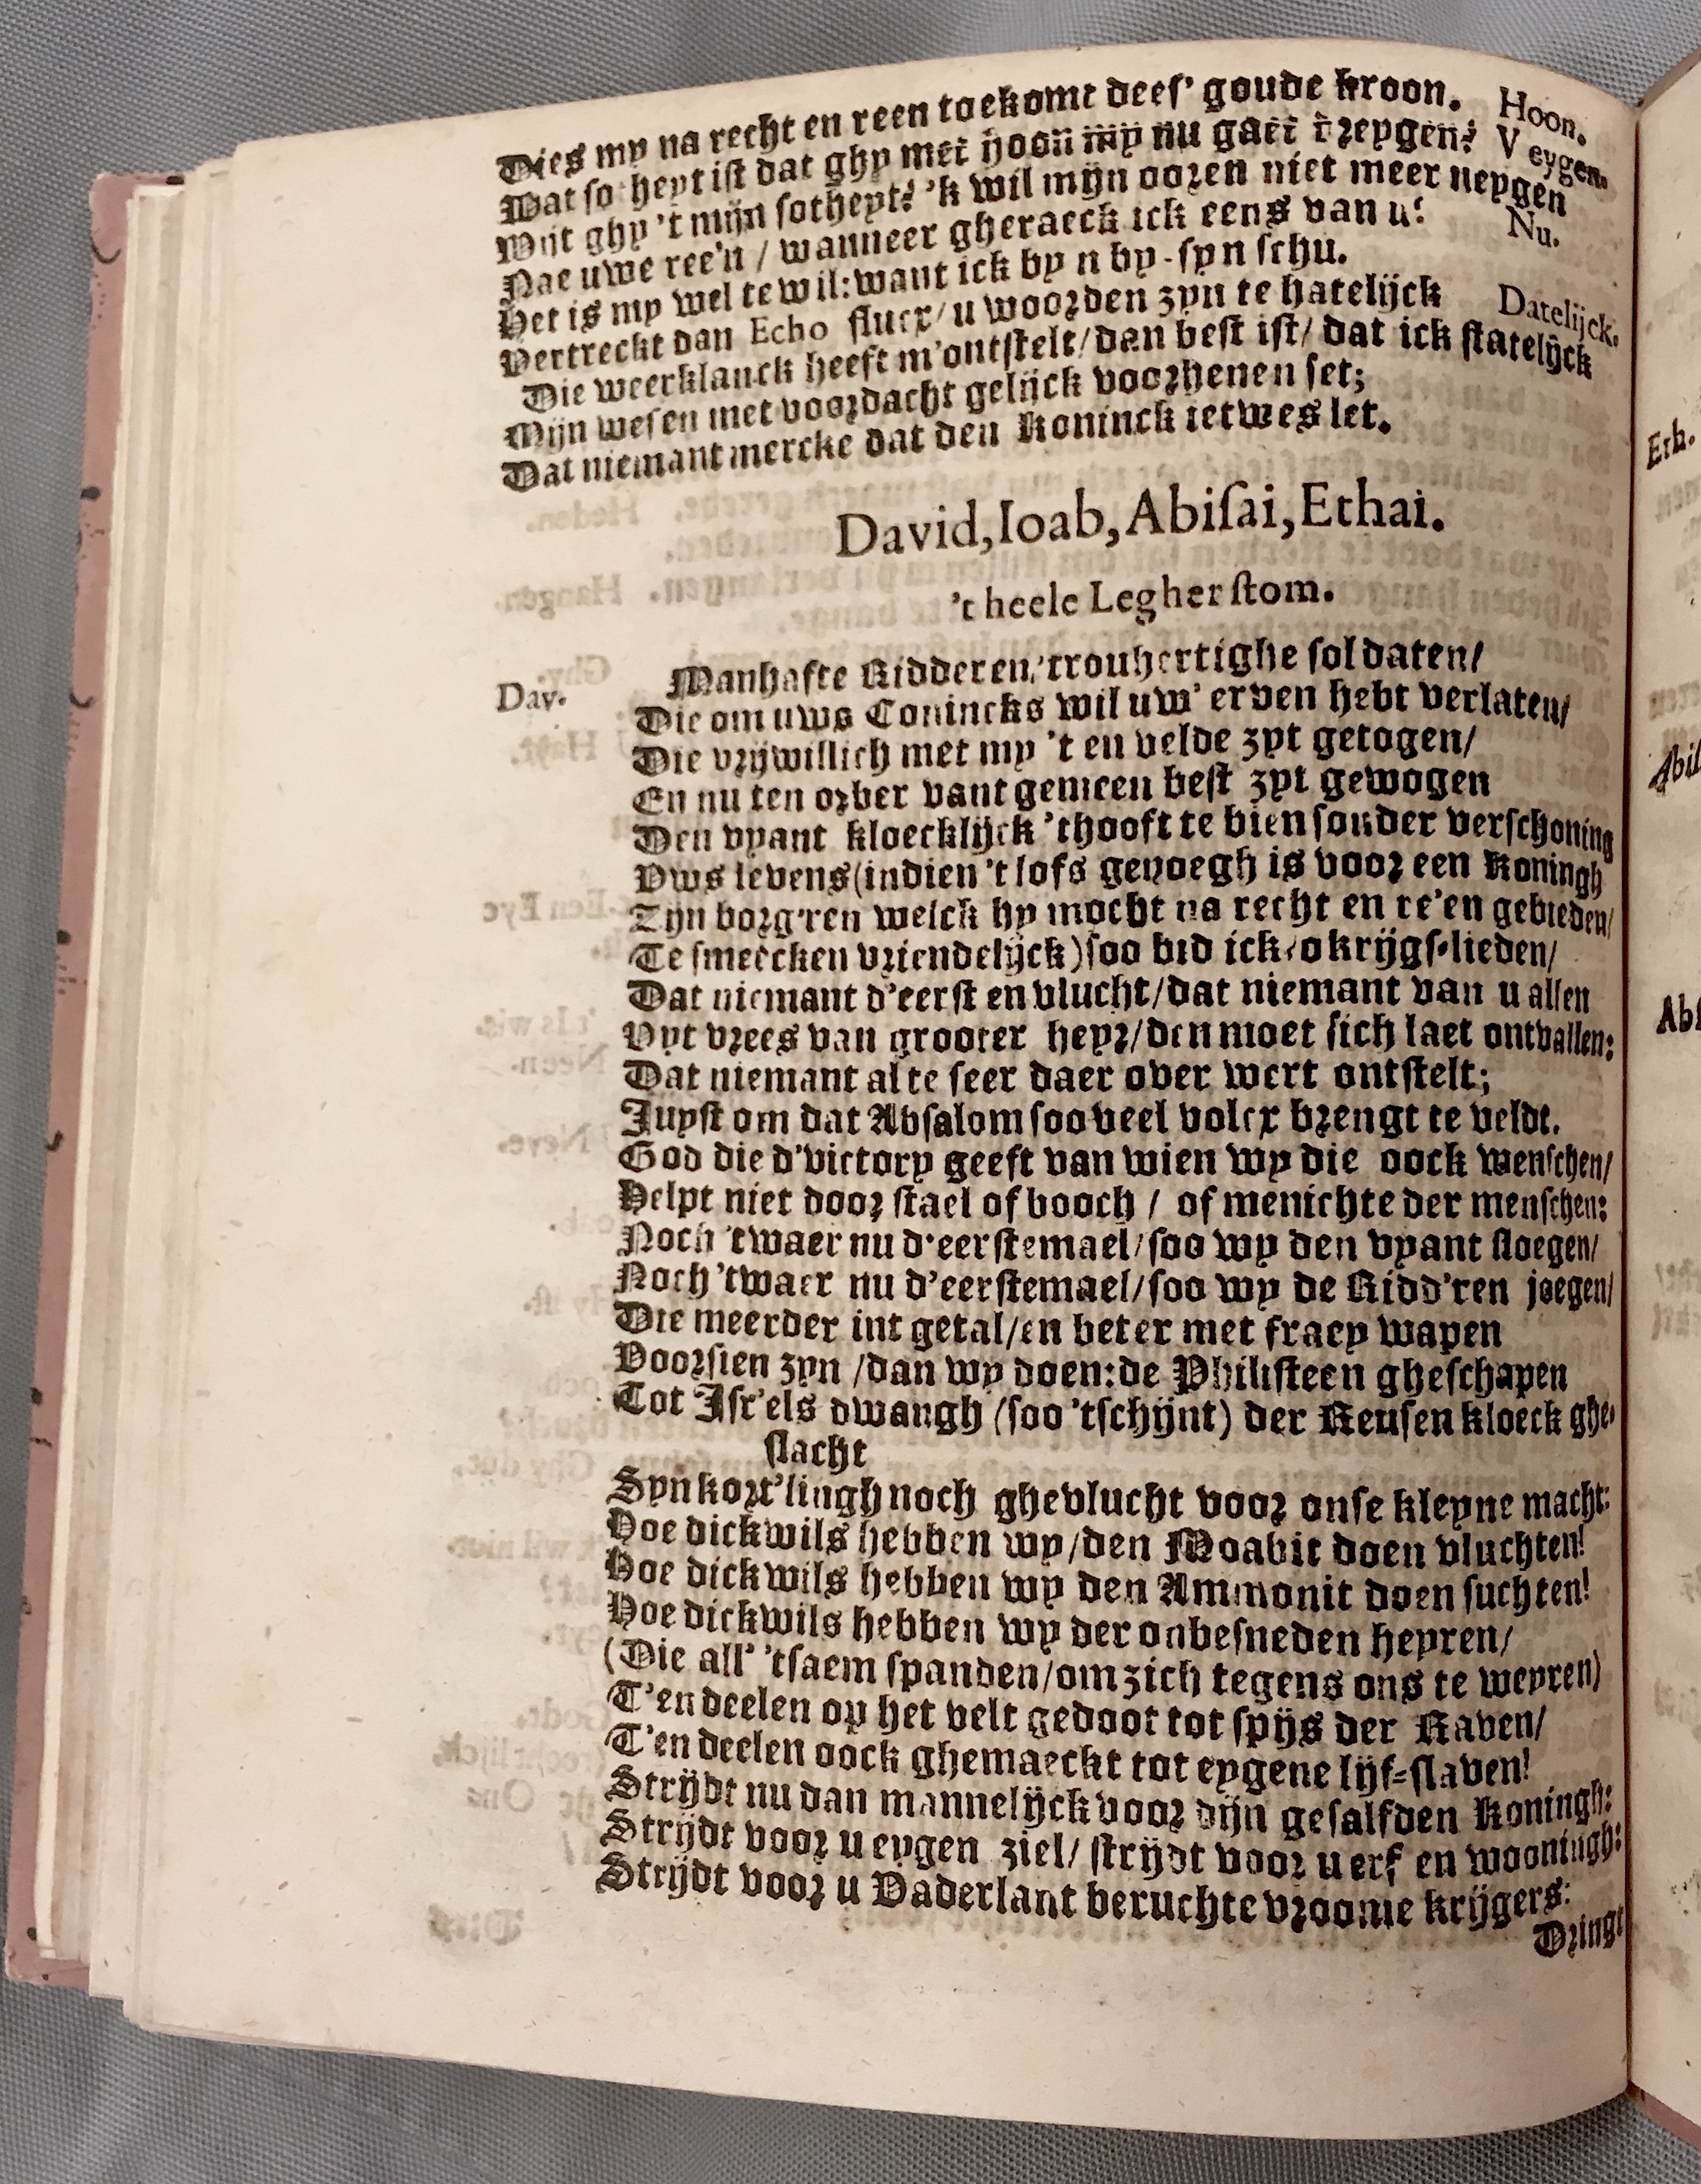 Dies my na recht en reen toekomt dees' goude kroon. Hoon.
Wat sotheyt ist dat ghy met hoon my nu gaet dreygen? Veygen.
Wijt ghy 't mijn sotheyt? 'k wil mijn ooren niet meer neygen
Nae uwe ree'n / wanneer gheraeck ick eens van u? Nu.
Het is my wel te wil: want ick by n by-syn schu.
Vertreckt dan Echo flucx / u woorden zyn te hatelijck Datelijck.
Die weerklanck heeft m'ontstelt / dan best ist / dat ick statelijck
Mijn wesen met voordacht gelijck voorhenen set;
Dat niemant mercke dat den Koninck ietwes let.
David, Ioab, Abiſai, Ethai.
't heele Legher ſtom.
Dav. Manhafte Ridderen / trouhertighe soldaten /
Die om uws Conincks wil uw' erven hebt verlaten /
Die vrywillich met my 't en velde zyt getogen /
En nu ten orber vant gemeen best zyt gewogen
Den vyant kloecklijck 'thooft te bien sonder verschoning
Uws levens (indien 't lofs genoegh is voor een Koningh
Zijn borg'ren welck hy mocht na recht en re'en gebieden /
Te smeecken vriendelijck) soo bid ick / o krijgs-lieden /
Dat niemant d'eerst en vlucht / dat niemant van u allen
Uyt vrees van grooter heyr / den moet sich laet ontvallen:
Dat niemant al te seer daer over wert ontstelt;
Juyst om dat Absalom soo veel volcx brengt te veldt.
God die d'victory geeft van wien wy die oock wenschen /
Helpt niet door stael of booch / of menichte der menschen:
Noch 'twaer nu d'eerstemael / soo wy den vyant sloegen /
Noch 'twaer nu d'eerstemael / soo wy de Ridd'ren joegen /
Die meerder int getal / en beter met fraey wapen
Voorsien zyn / dan wy doen: de Philisteen gheschapen
Tot Isr'els dwangh (soo 'tschijnt) der Reusen kloeck ghe-
slacht
Syn kort'lingh noch ghevlucht voor onse kleyne macht:
Hoe dickwils hebben wy / den Moabit doen vluchten!
Hoe dickwils hebben wy den Ammonit doen suchten!
Hoe dickwils hebben wy der onbesneden heyren /
(Die all' 'tsaem spanden / om zich tegens ons te weyren)
T'en deelen op het velt gedoot tot spijs der Raven /
T'en deelen oock ghemaeckt tot eygene lijf-slaven!
Strijdt nu dan mannelijck voor dijn gesalfden Koningh:
Strijdt voor u eygen ziel / strijdt voor u erf en wooningh:
Strijdt voor u Vaderlant beruchte vroome krijgers:
Dringt
Eth.